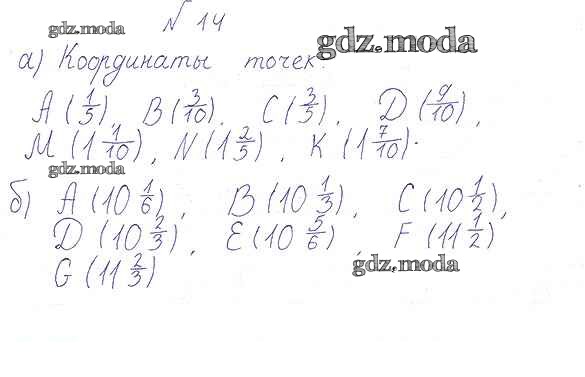 № 14
gdz.moda
gdz.moda
а) Координаты точек:
A (1/5), B (3/10), C (3/5), D (9/10),
M (1 1/10), N (1 2/5), K (1 7/10).
gdz.moda
б) A (10 1/6), B (10 1/3), C (10 1/2),
D (10 2/3), E (10 5/6), F (11 1/2)
gdz.moda
G (11 2/3)